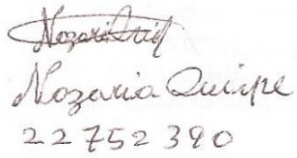 Nozaria Quispe
22752390